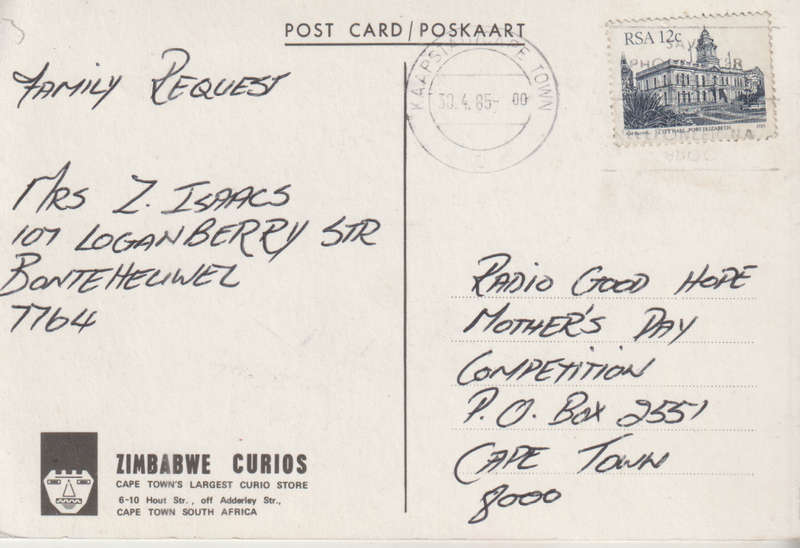 POST CARD/POSKAART
RSA 12c
CITY HALL, PORT ELIZABETH
KAAPSTAD CAPE TOWN
30.4.85- 00
FAMILY REQUEST
MRS Z. ISAACS
107 LOGANBERRY STR
BONTEHEUWEL
7764
RADIO GOOD HOPE
MOTHER'S DAY
COMPETITION
P.O. BOX 2551
CAPE TOWN
8000
ZIMBABWE CURIOS
CAPE TOWN'S LARGEST CURIO STORE
6-10 Hout Str., off Adderley Str.,
CAPE TOWN SOUTH AFRICA